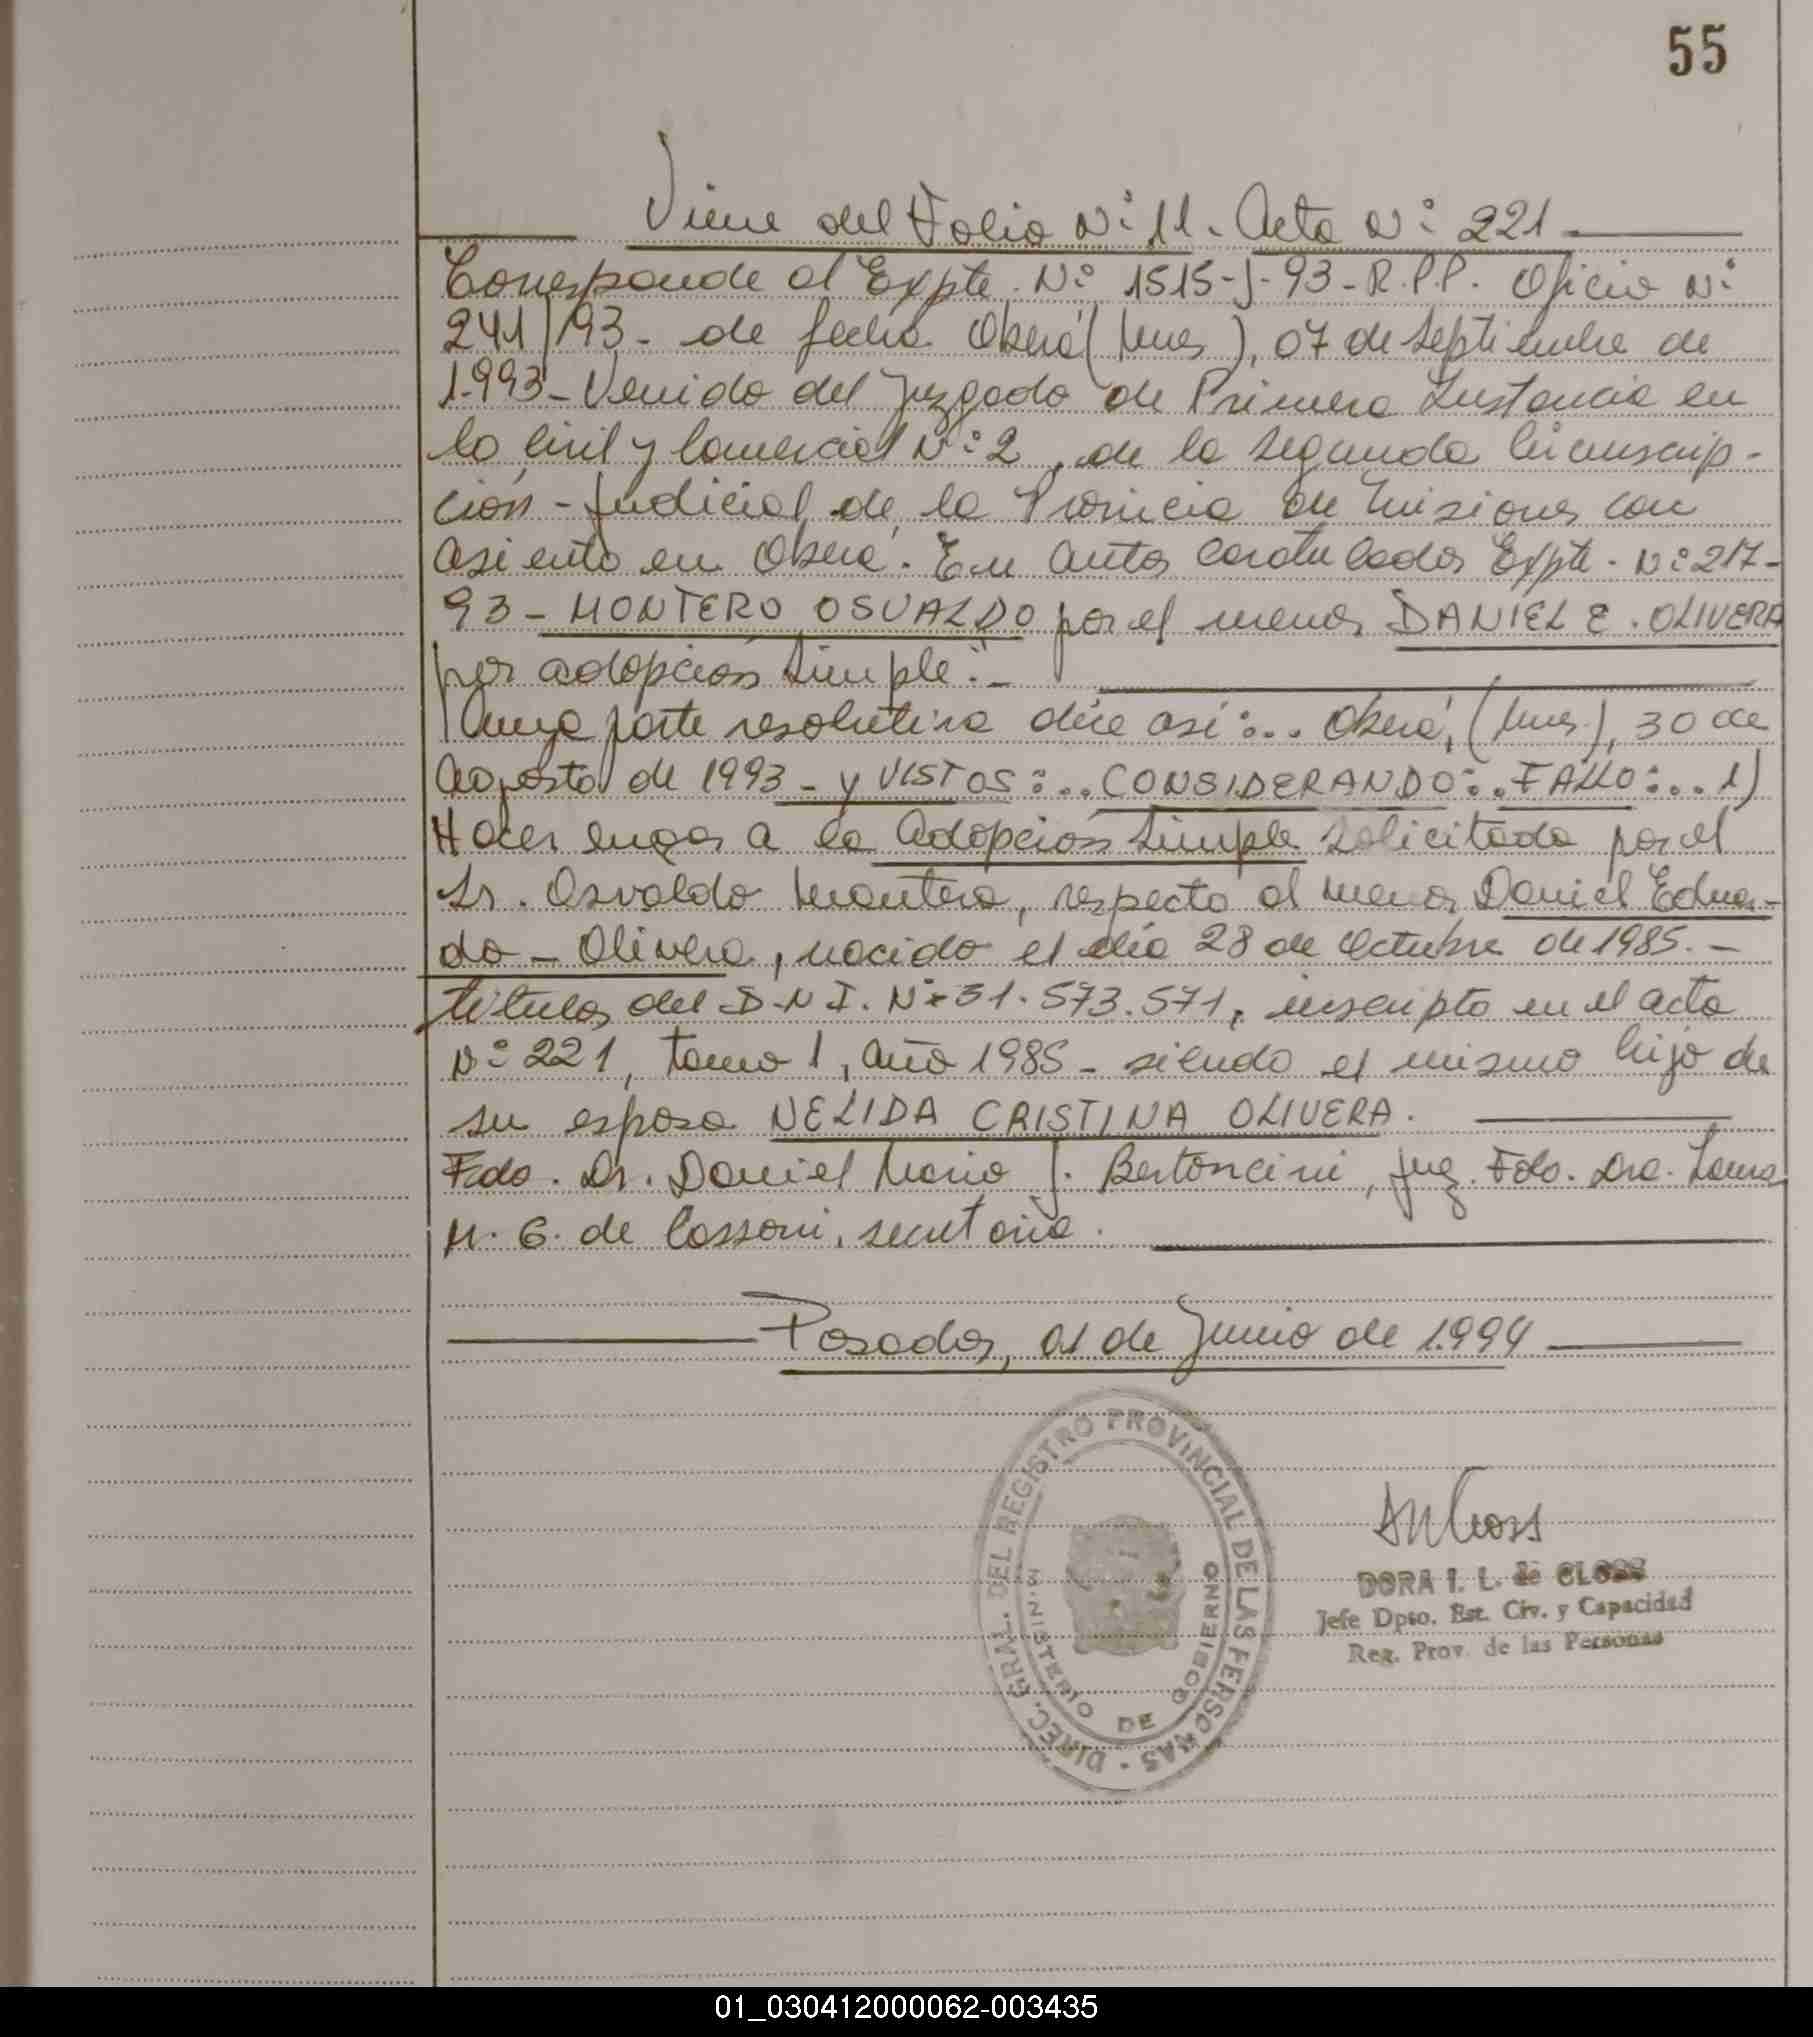 55
Viene del Folio N° 11. Acta N° 221
Corresponde al Expte. N° 1515-J-93-R.P.P. Oficio N°
241/93- de fecha Oberá (Mnes), 07 de Septiembre de
1.993- Venido del Juzgado de Primera Instancia en
lo Civil y Comercial N° 2, de la Segunda Circunscrip-
ción - Judicial de la Provincia de Misiones con
asiento en Oberá. En autos caratulados Expte. N° 217-
93- MONTERO OSVALDO por el menor DANIEL E. OLIVERA
por adopción Simple".-
Cuya parte resolutiva dice así:... Oberá, (Mnes), 30 de
Agosto de 1993 - y VISTOS:.. CONSIDERANDO:.. FALLO:... 1)
Hacer lugar a la Adopción Simple Solicitada por el
Sr. Osvaldo Montero, respecto al menor Daniel Eduar-
do - Olivera, nacido el día 28 de Octubre de 1985. -
titular del D.N.I. N° 31.573.571, inscripto en el acta
N° 221, tomo 1, año 1985 - siendo el mismo hijo de
su esposa NELIDA CRISTINA OLIVERA.
Fdo. Dr. Daniel Mario J. Bertoncini, Juez. Fdo. Dra. Laura
M. G. de Cassoni, secretaria.
Posadas, 01 de Junio de 1.994
DIREC. GRAL. DEL REGISTRO PROVINCIAL DE LAS PERSONAS
MINISTERIO DE GOBIERNO
DORA I. L. de CLOSS
Jefe Dpto. Est. Civ. y Capacidad
Reg. Prov. de las Personas
01_030412000062-003435